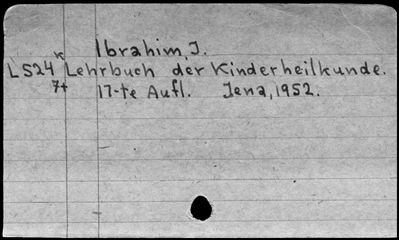 Ibrahim, J.
K
LS24 Lehrbuch der Kinderheilkunde.
7t 17-te Aufl. Jena, 1952.